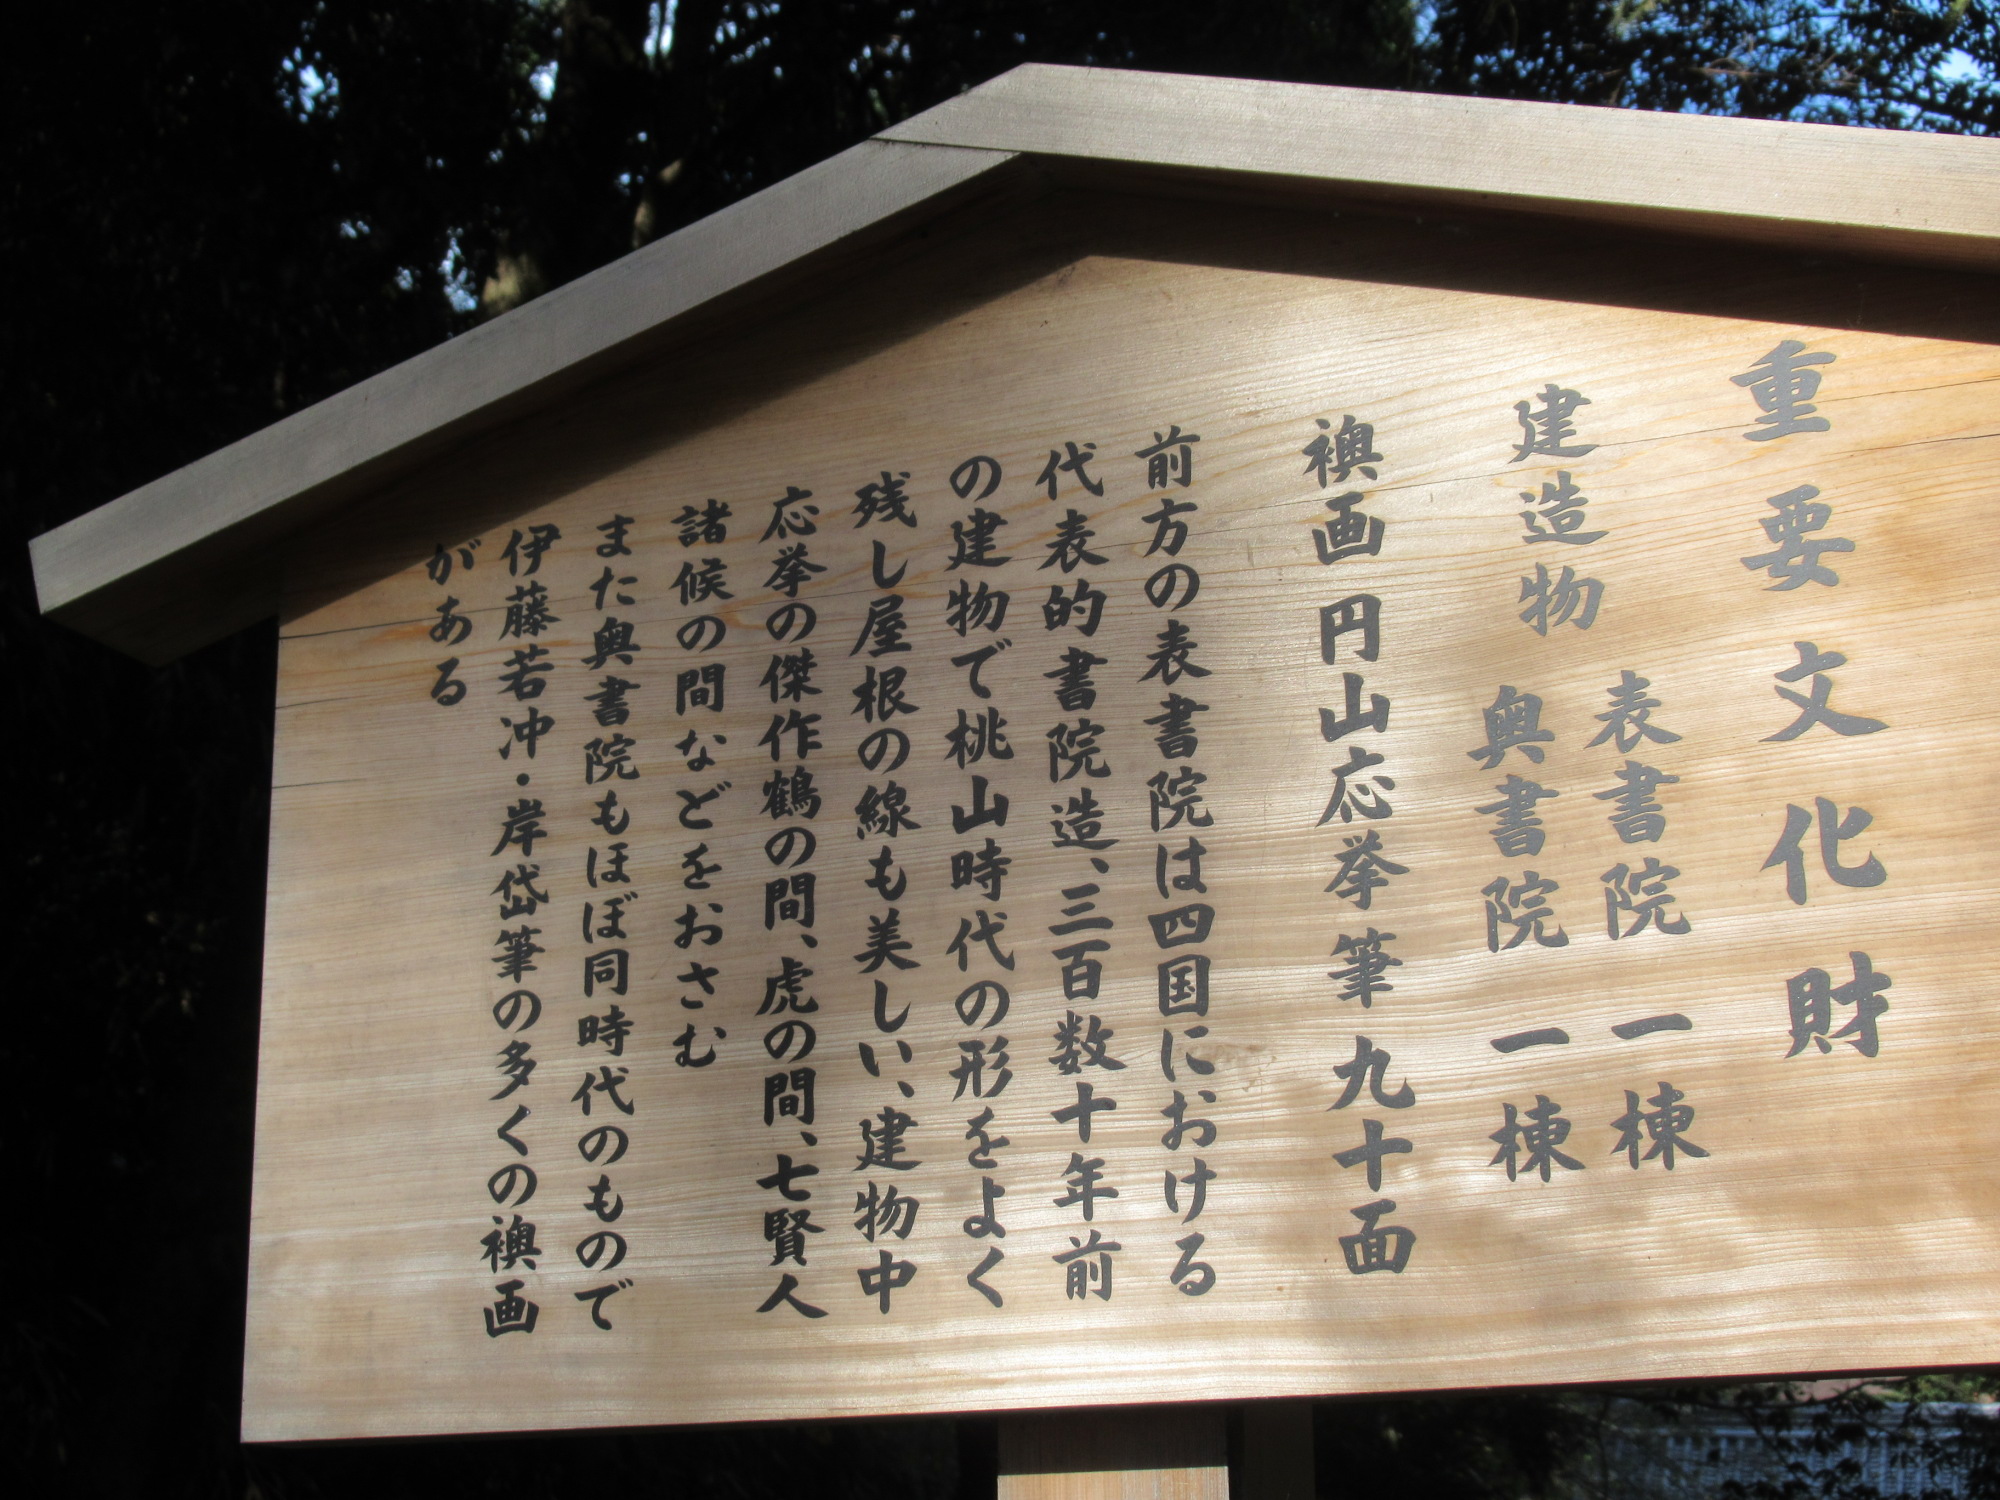 重要文化財
建造物
表書院 一棟
奥書院 一棟
襖画 円山応挙筆 九十面
前方の表書院は四国における
代表的書院造、三百数十年前
の建物で桃山時代の形をよく
残し屋根の線も美しい、建物中
応挙の傑作鶴の間、虎の間、七賢人
諸候の間などをおさむ
また奥書院もほぼ同時代のもので
伊藤若冲・岸岱筆の多くの襖画
がある